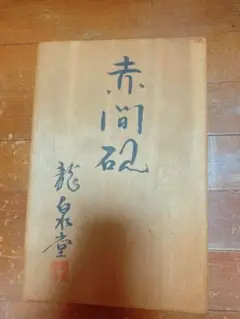 赤間硯
龍泉堂